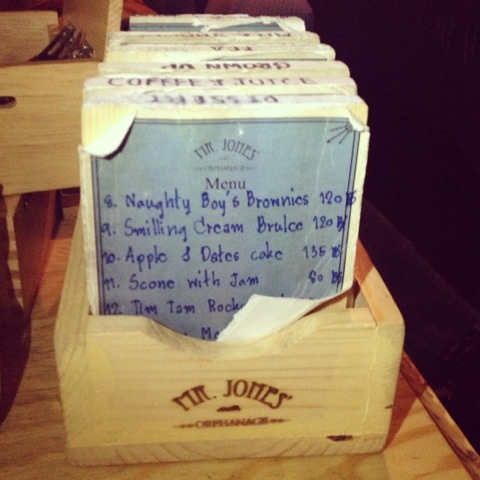 TEA
GROWN UP
COFFEE & JUICE
DESSERT
MR. JONES'
ORPHANAGE
Menu
8. Naughty Boy's Brownies 120 B
9. Smilling Cream Brulee 120 B
10. Apple & Dates cake 135 B
11. Scone with Jam 80 B
12. Tim Tam Rocky
MR. JONES'
ORPHANAGE